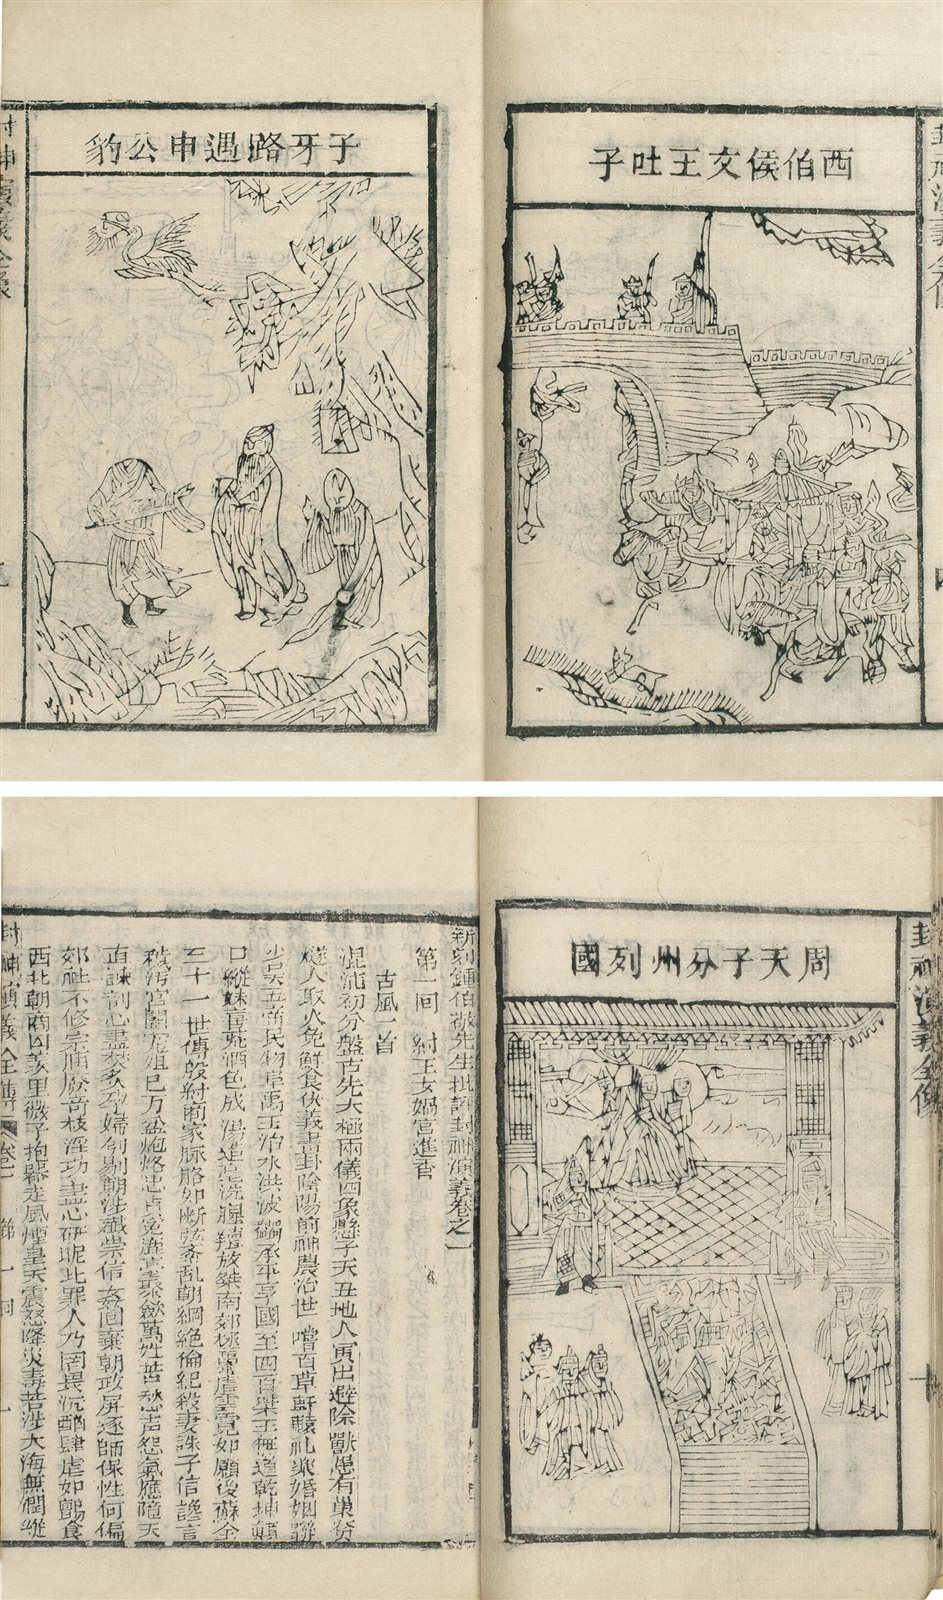 封神演義全像
西伯侯文王吐子
子牙路遇申公豹
封神演義全像
封神演義全像
周天子分州列國
新刻鍾伯敬先生批評封神演義卷之一
第一回 紂王女媧宮進香
古風一首
混沌初分盤古先太極兩儀四象懸子天丑地人寅出避除獸患有巢賢
燧人取火免鮮食伏羲畫卦陰陽前神農治世嚐百草軒轅礼樂婚姻聯
少昊五帝民物阜禹王治水洪波蠲承平享國至四百桀王無道乾坤顛
日縱妹喜荒酒色成湯造亳洗腥羶放桀南郊拯萬虐雲霓如願後蘇全
三十一世傳殷紂商家脉胳如断弦紊乱朝綱絕倫紀殺妻誅子信讒言
穢污宮闈寵妲己万盆炮烙忠貞冤鹿臺聚歛萬姓苦愁声怨氣應障天
直諫剖心盡焚炙孕婦刳剔朝涉殲崇信姦回棄朝政屏逐師保性何偏
郊社不修宗庙廢奇枝淫功盡心研昵比罪人乃罔畏沉酗肆虐如鸇食
西北朝商囚羑里微子抱器走風煙皇天震怒降災毒若涉大海無淵邊
封神演義全傳 卷一 第一回 一